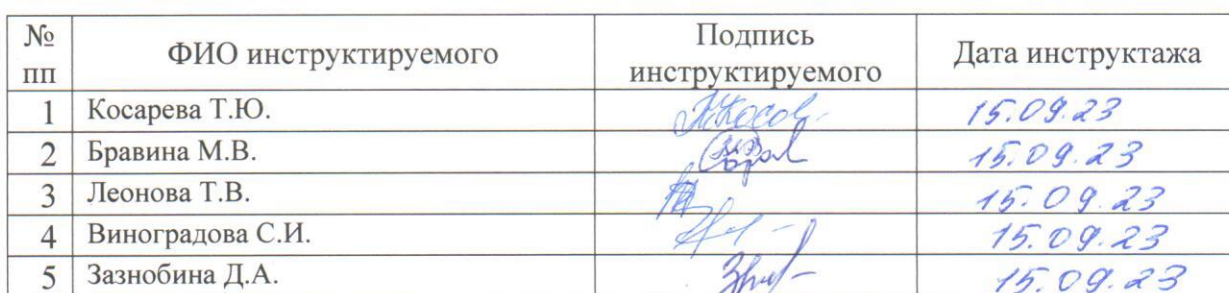 № пп ФИО инструктируемого Подпись инструктируемого Дата инструктажа
1 Косарева Т.Ю. 15.09.23
2 Бравина М.В. 15.09.23
3 Леонова Т.В. 15.09.23
4 Виноградова С.И. 15.09.23
5 Зазнобина Д.А. 15.09.23